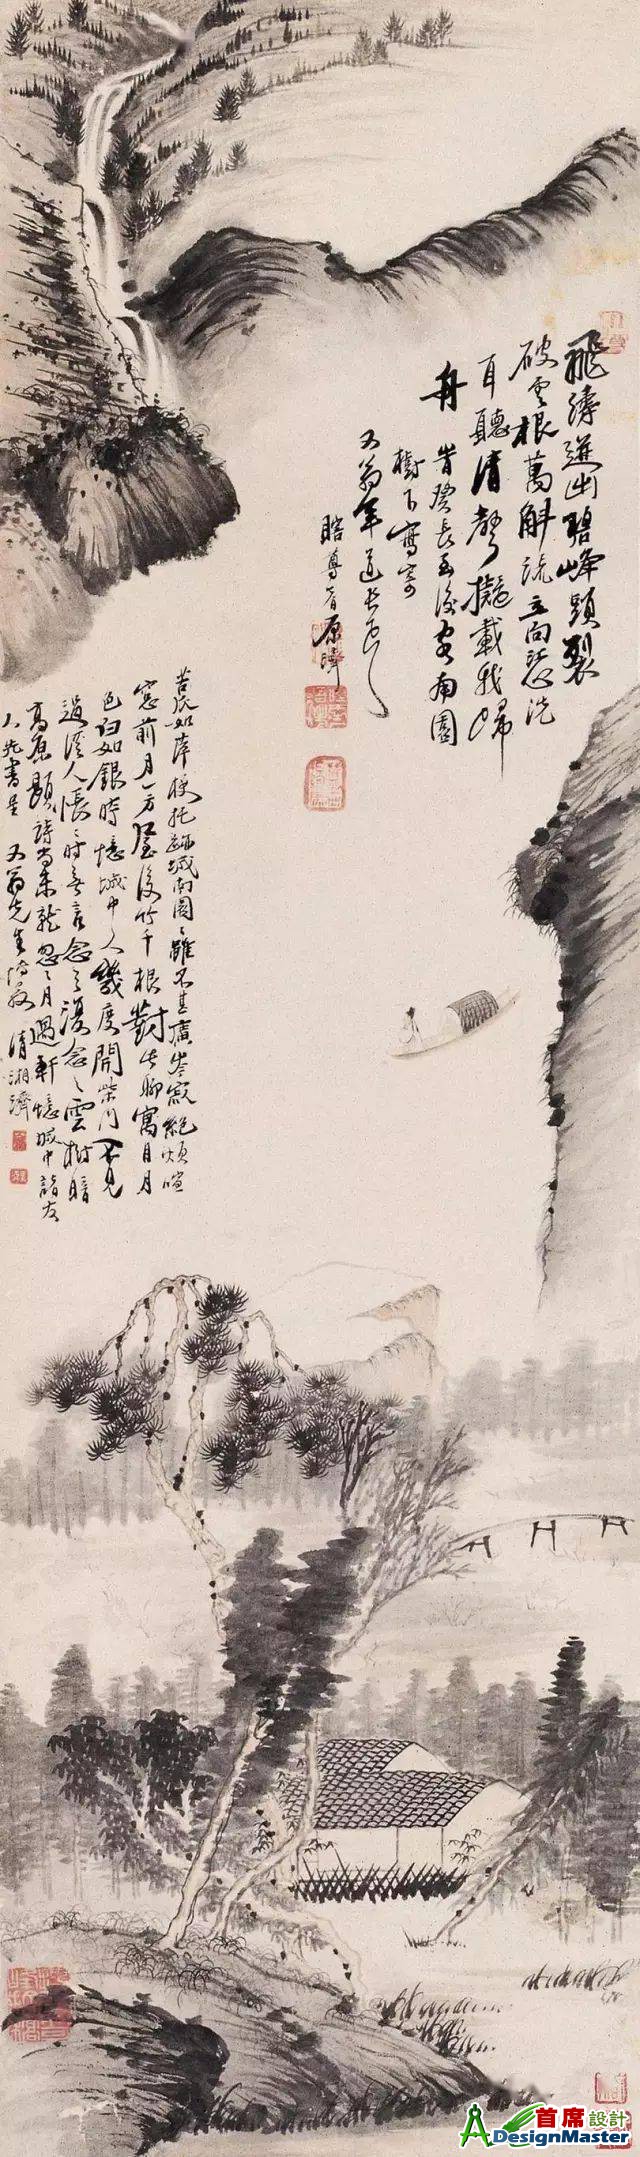 飛濤迸出碧峰頭裂
破雲根萬斛流立向洗
耳聽清聲擬載我歸
舟 癸長至後客南園
樹下寫寄
又翁年道長兄
瞎尊者原濟
苦瓜如萍梗托跡城南園園雖不甚廣岑寂絕煩喧
窗前月一方屋後竹千根對此聊寓目月
色白如銀時憶城中人幾度開柴門不見
過溪人悵悵時無言念之復念之雲樹暗
高原題詩尚未就忽忽月過軒憶城中諸友
人先書呈 又翁先生博教 清湘濟
首席設計
DesignMaster